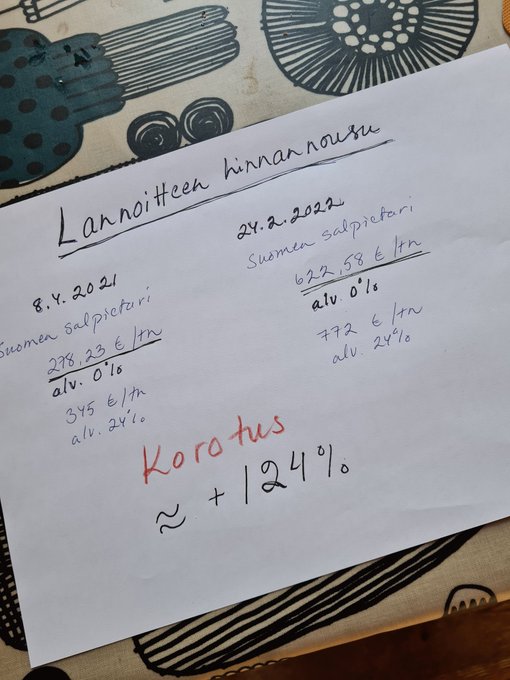 Lannoitteen hinnannousu
8.4.2021
Suomen salpietari
278,23 €/tn
alv. 0%
345 €/tn
alv. 24%
24.2.2022
Suomen salpietari
622,58 €/tn
alv. 0%
772 €/tn
alv. 24%
Korotus
≈ +124%